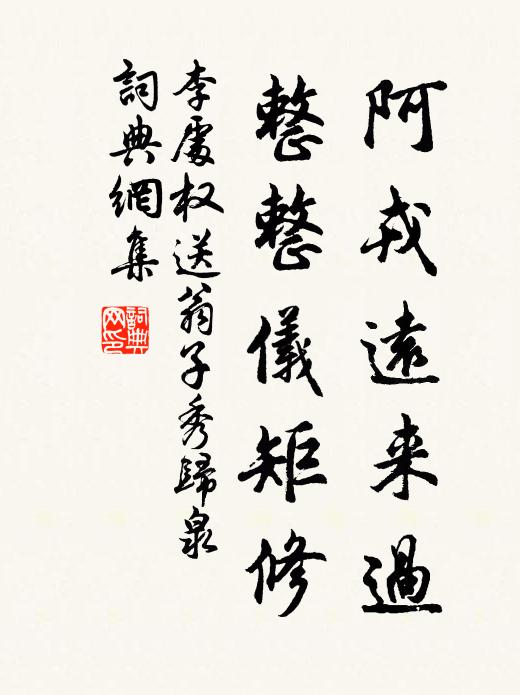 阿戎遠来過
整整儀矩修
李處权送翁子秀歸泉
詞典網集
詞典网印